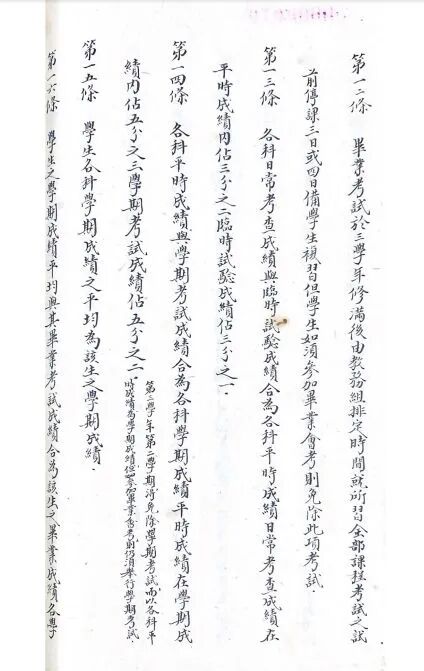 第一二條　畢業考試於三學年修滿後由教務組排定時間就所習全部課程考試之試
前停課三日或四日備學生複習但學生如須參加畢業會考則免除此項考試．
第一三條　各科日常考查成績與臨時試驗成績合為各科平時成績日常考查成績在
平時成績內佔三分之二臨時試驗成績佔三分之一．
第一四條　各科平時成績與學期考試成績合為各科學期成績平時成績在學期成
績內佔五分之三學期考試成績佔五分之二．
第三學年第二學期得免除學期考試而以各科平
時成績為學期成績但如參加畢業會考則仍須舉行學期考試．
第一五條　學生各科學期成績之平均為該生之學期成績．
第一六條　學生之學期成績平均與其畢業考試成績合為該生之畢業成績各學